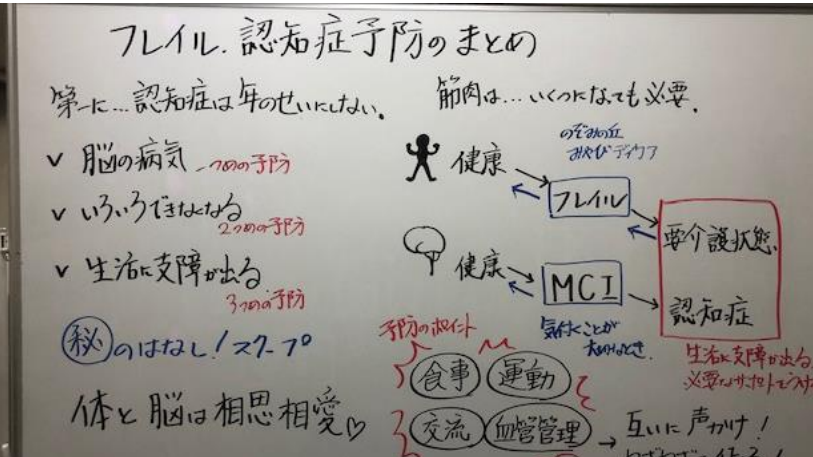 フレイル.認知症予防のまとめ
第一に…認知症は年のせいにしない。
v 脳の病気 一つめの予防
v いろいろできなくなる
2つめの予防
v 生活に支障が出る
3つめの予防
㊙のはなし!スクープ
体と脳は相思相愛♡
筋肉は…いくつになっても必要.
のぞみの丘
みやびデイケア
健康
フレイル
要介護状態.
健康
MCI
認知症
気付くことが
生活に支障が出る
必要なサポートをうけ
予防のポイント
食事 運動
交流 血管管理 → 互いに声かけ!